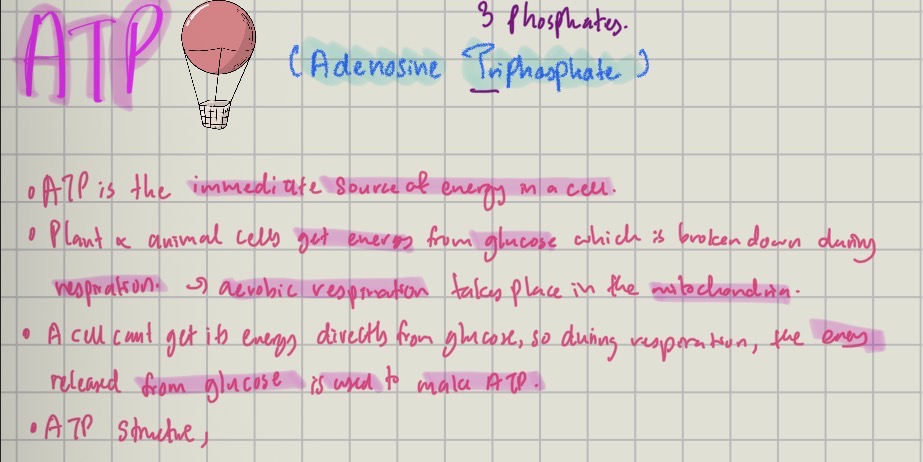 3 Phosphates.
ATP (Adenosine Triphosphate)
• ATP is the immediate source of energy in a cell.
• Plant & animal cells get energy from glucose which is broken down during
respiration. → aerobic respiration takes place in the mitochondria.
• A cell cant get its energy directly from glucose, so during resperation, the energy
released from glucose is used to make ATP.
• ATP structure,